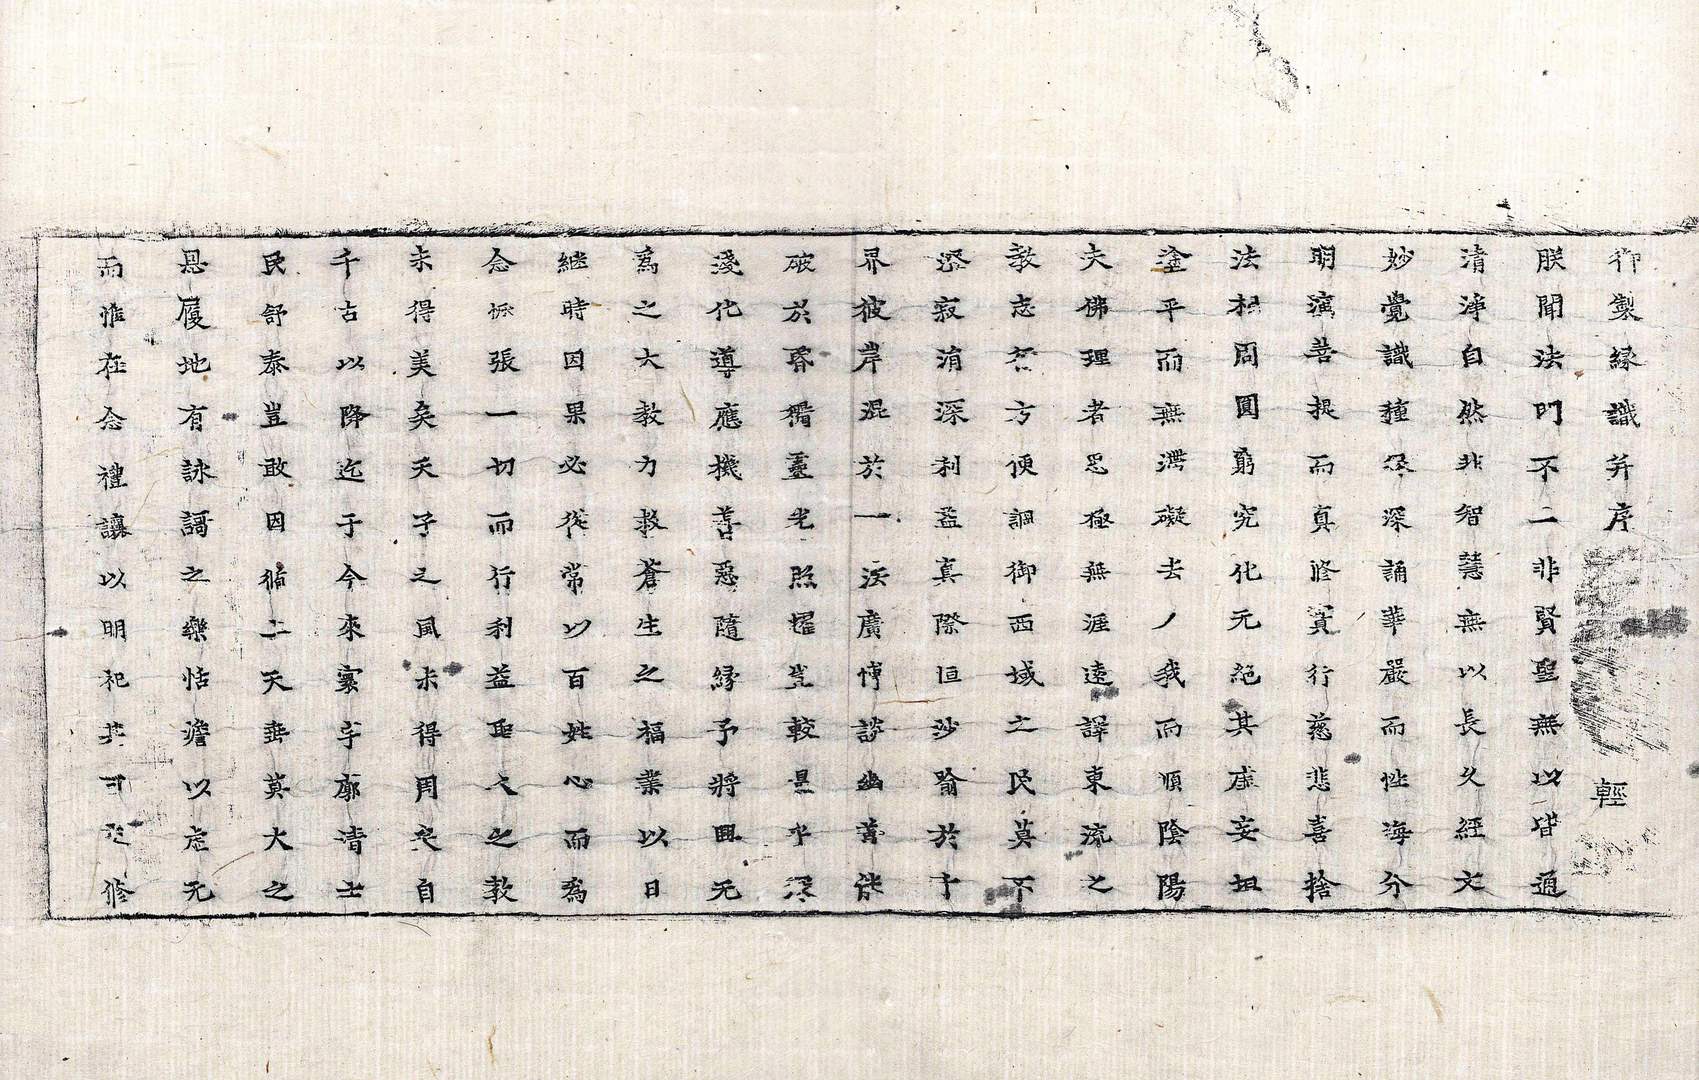 御製緣識并序 輕
朕聞法門不二非賢聖無以皆通
清淨自然非智慧無以長久經文
妙覺識種深誦華嚴而性海分
明演菩提而真修實行慈悲喜捨
法相周圓窮究化元絕其虛妄坦
塗平而無滯礙去人我而順陰陽
夫佛理者思極無涯遠譯東流之
教志方便調御西域之民莫不
深寂消深利益真際恒沙喻於予
界彼岸混於一法廣博談幽普能
破於昏蠢光照耀豈較量乎深
淺化導應機善惡隨緣予將興元
為之大教力救蒼生之福業以日
繼時因果必從常以百姓心而為
念恢張一切而行利益聖人之教
未得美矣天子之風未得周突自
千古以降迄于今來寰宇廓清士
民舒泰豈敢因循二天垂莫大之
恩履地有詠謌之樂恬澹以虛元
而惟在念禮讓以明祀其修